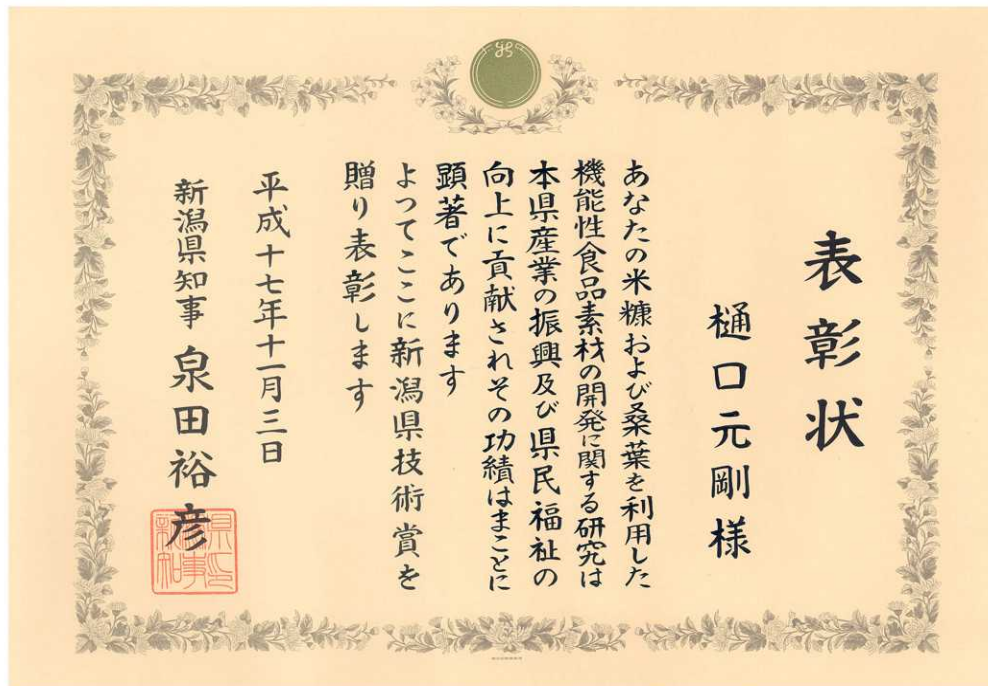 表彰状
樋口元剛様
あなたの米糠および桑葉を利用した
機能性食品素材の開発に関する研究は
本県産業の振興及び県民福祉の
向上に貢献されその功績はまことに
顕著であります
よつてここに新潟県技術賞を
贈り表彰します
平成十七年十一月三日
新潟県知事 泉田裕彦